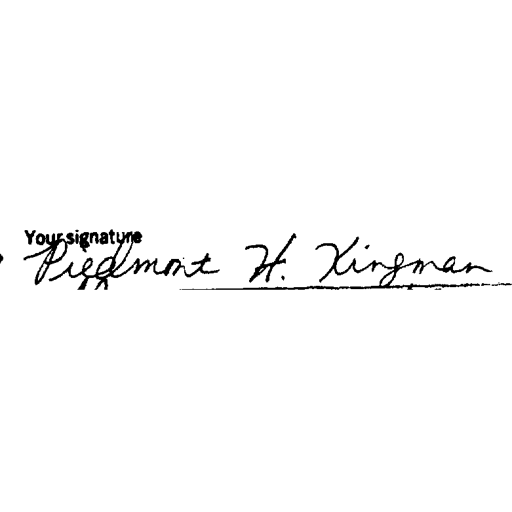 Your signature
Piedmont H. Kingman